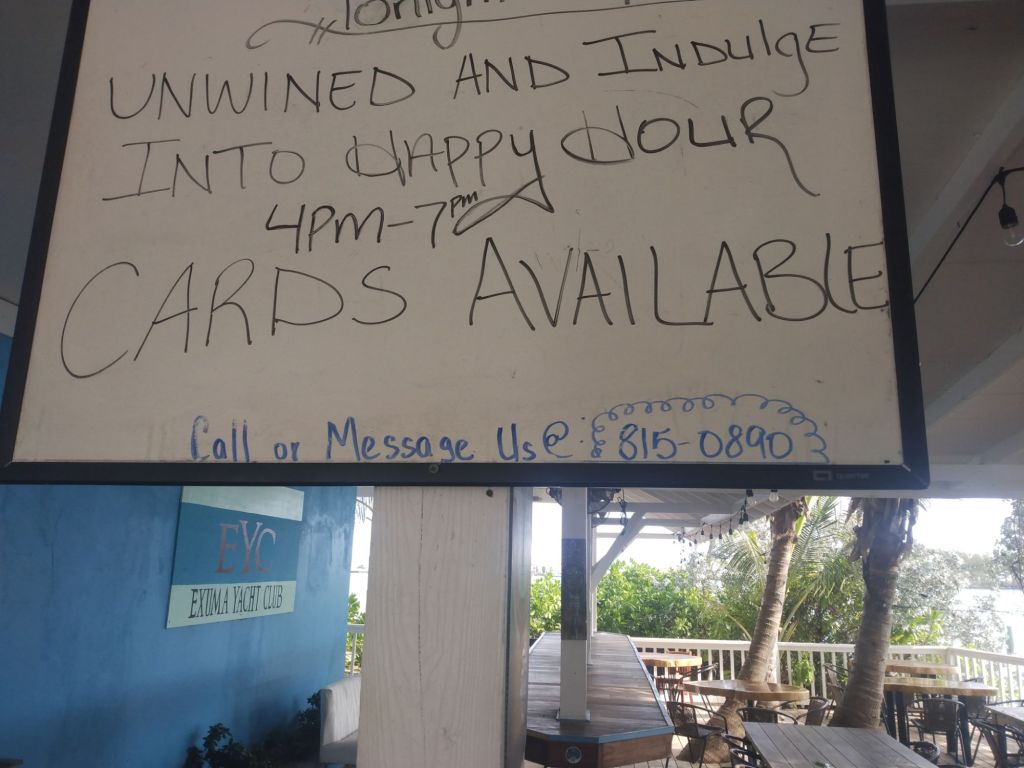 Tonight
UNWINED AND INDULGE
INTO HAPPY HOUR
4PM-7PM
CARDS AVAILABLE
Call or Message Us @: 815-0890
quartet
EYC
EXUMA YACHT CLUB